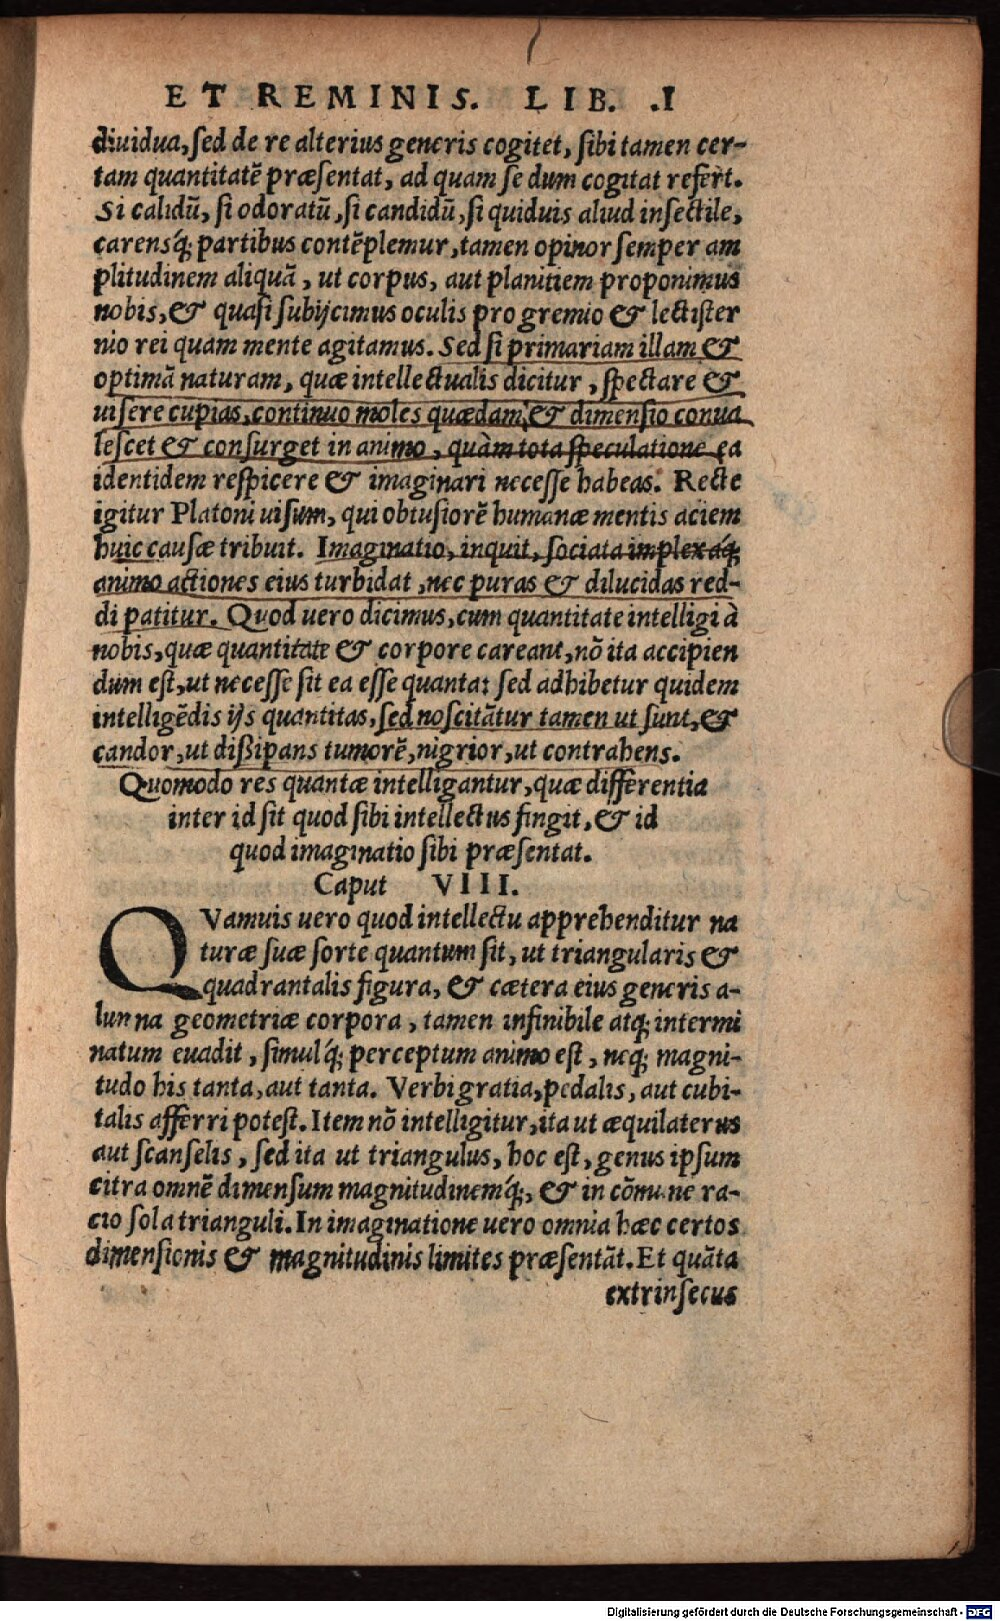 ET REMINIS. LIB. .I
diuidua, sed de re alterius generis cogitet, sibi tamen cer-
tam quantitatē præsentat, ad quam se dum cogitat refert.
Si calidū, si odoratū, si candidū, si quiduis aliud insectile,
carensq́; partibus contēplemur, tamen opinor semper am
plitudinem aliquā, ut corpus, aut planitiem proponimus
nobis, & quasi subijcimus oculis pro gremio & lectister
nio rei quam mente agitamus. Sed si primariam illam &
optimā naturam, quæ intellectualis dicitur, spectare &
uisere cupias, continuo moles quædam, & dimensio conua
lescet & consurget in animo, quàm tota speculatione ea
identidem respicere & imaginari necesse habeas. Recte
igitur Platoni uisum, qui obtusiorē humanæ mentis aciem
huic causæ tribuit. Imaginatio, inquit, sociata implexaq́;
animo actiones eius turbidat, nec puras & dilucidas red-
di patitur. Quod uero dicimus, cum quantitate intelligi à
nobis, quæ quantitate & corpore careant, nō ita accipien
dum est, ut necesse sit ea esse quanta: sed adhibetur quidem
intelligēdis ijs quantitas, sed noscitātur tamen ut sunt, &
candor, ut dißipans tumorē, nigrior, ut contrahens.
Quomodo res quantæ intelligantur, quæ differentia
inter id sit quod sibi intellectus fingit, & id
quod imaginatio sibi præsentat.
Caput VIII.
QVamuis uero quod intellectu apprehenditur na
turæ suæ sorte quantum sit, ut triangularis &
quadrantalis figura, & cætera eius generis a-
lumna geometriæ corpora, tamen infinibile atq; intermi
natum euadit, simulq́; perceptum animo est, neq; magni-
tudo his tanta, aut tanta. Verbi gratia, pedalis, aut cubi-
talis afferri potest. Item nō intelligitur, ita ut æquilaterus
aut scanselis, sed ita ut triangulus, hoc est, genus ipsum
citra omnē dimensum magnitudinemq́;, & in cōmune ra-
cio sola trianguli. In imaginatione uero omnia hæc certos
dimensionis & magnitudinis limites præsentāt. Et quāta
extrinsecus
Digitalisierung gefördert durch die Deutsche Forschungsgemeinschaft - DFG